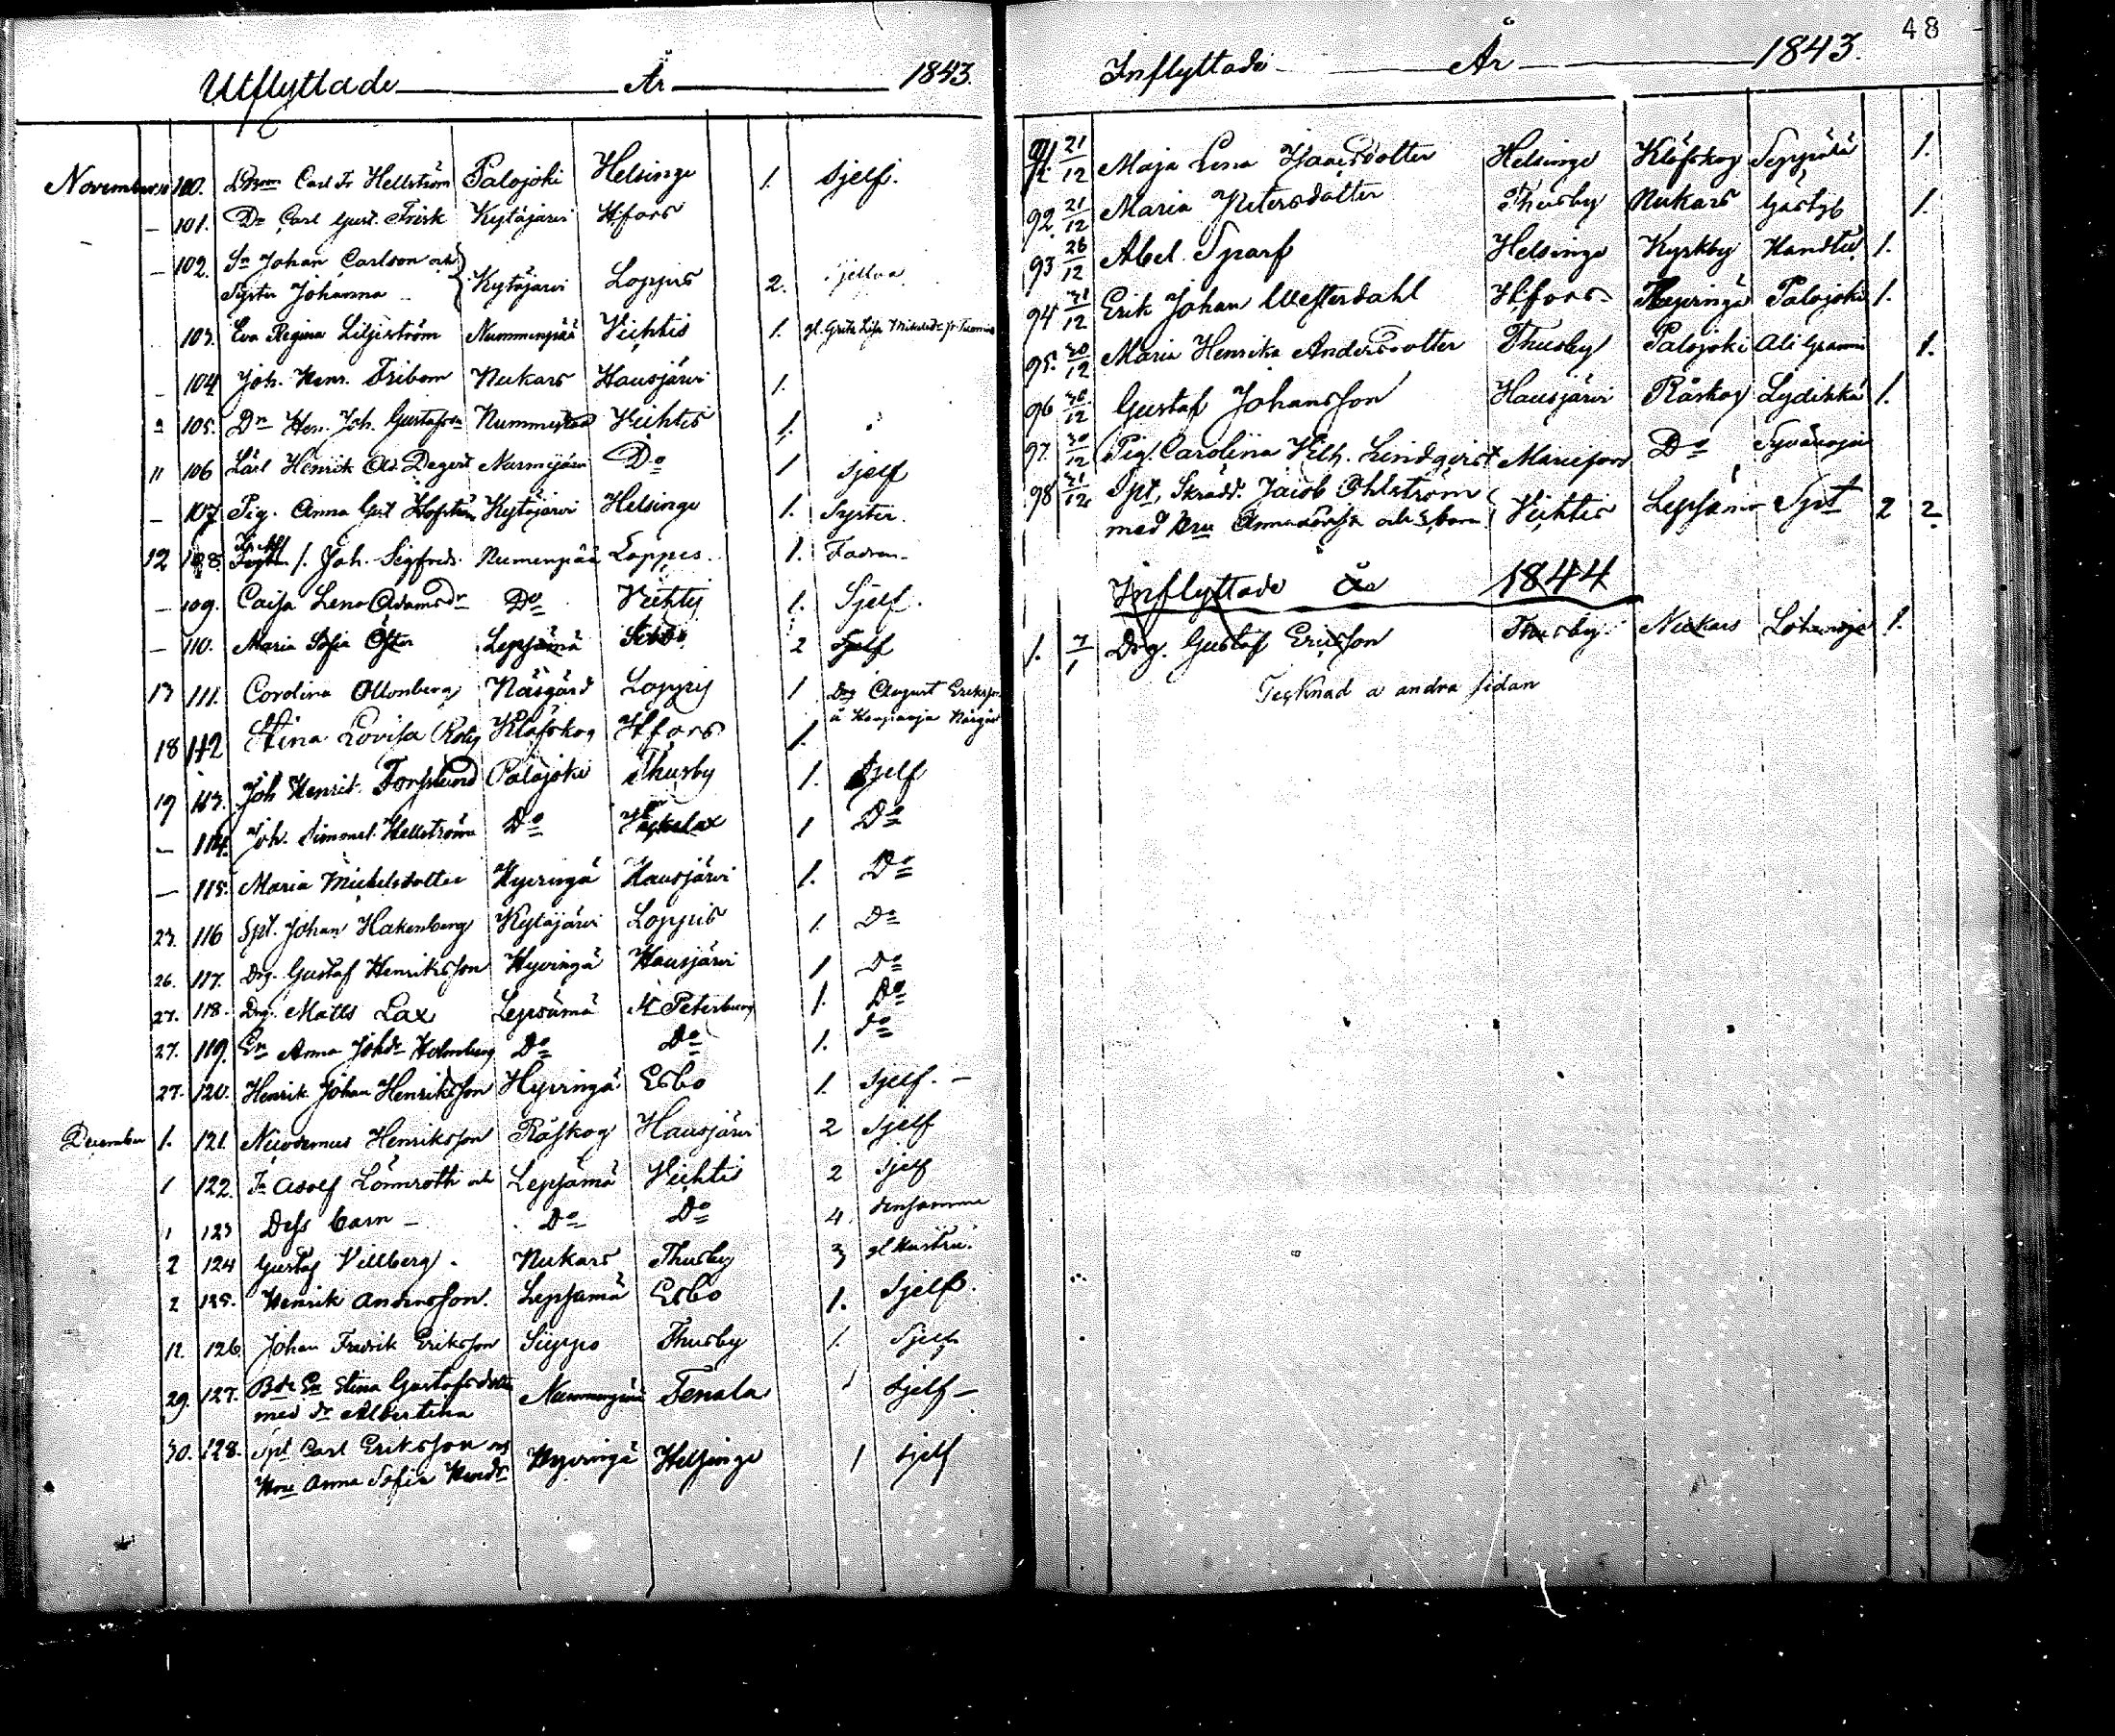 48
Utflyttade År 1843.
November 10 100. Carl Fr Hellström Palojoki Helsinge 1. Sjelf.
— 101. Dn Carl Gust. Frisk Kytäjärvi Hfors
— 102. Sn Johan Carlson och
Syster Johanna Kytäjärvi Loppis 2. Sjelfva
103. Eva Regina Liljeström Nummenpää Vichtis 1.
104 Joh. Henr. Fribom Nukars Hausjärvi 1.
105. Dn Hen. Joh. Gustafson Vichtis 1.
11 106 Henrik Degert Nurmijärvi Do 1 Sjelf
— 107 Pig. Anna Kytäjärvi Helsinge 1. Syster.
12 108. Joh. Sigfreds. Numenpää Loppis. 1. Fadren
— 109. Cajsa Lena Adamsdr Do Vichtis 1. Sjelf.
— 110. Maria Sofia Öster Lepsämä 2 Sjelf
13 111. Carolina Ollonberg Näsgård Loppis 1 Drg August Eriksson
å Näsgård
18 112 Stina Lovisa Klöfskog Hfors 1.
19 113. Joh Henrik Forslund Palojoki Thusby 1. Sjelf
— 114. Joh. Simmel. Hellström Do 1 Do
— 115. Maria Michelsdotter Hyvingä Hausjärvi 1. Do
23. 116 Spt. Johan Hakenberg Kytäjärvi Loppis 1. Do
26. 117. Drg. Gustaf Henriksson Hyvingä Hausjärvi 1 Do
27. 118. Drg. Matts Lax Lepsämä St Petersburg 1. Do
27. 119. En Anna Johdr Holmberg Do Do 1. do
27. 120. Henrik Johan Henriksson Hyvingä Esbo 1. Sjelf. —
December 1. 121. Nicodemus Henriksson Råskog Hausjärvi 2 Sjelf
1 122. Adolf Lönnroth och Lepsämä Vichtis 2 Sjelf
1 123 Dess barn — Do Do 4 densamma
2 124 Gustaf Villberg. Nukars Thusby 3 gl Hustru.
2 125. Henrik Andersson. Lepsämä Esbo 1. Sjelf.
12. 126 Johan Fredrik Eriksson Suppo Thusby 1. Sjelf
29. 127. En Stina Gustafsdotter
med dr Albertina Nummenpää Tenala 1 Sjelf —
30. 128. Spt Carl Eriksson och
Hru Anna Sofia Hyvingä Helsinge 1 Sjelf
Inflyttade År 1843.
91. 21/12 Maja Lena Isaacsdotter Helsinge Klöfskog Seppälä 1.
92. 21/12 Maria Petersdotter Thusby Nukars 1.
93 26/12 Abel Sparf Helsinge Kyrkby 1.
94 31/12 Erik Johan Westerdahl Hfors Hyvingä Palojoki 1.
95. 30/12 Maria Henrika Andersdotter Thusby Palojoki Ali 1.
96 30/12 Gustaf Johansson Hausjärvi Råskog Lydikkä 1.
97. 30/12 Pig. Carolina Vilh. Lindqvist Do
98 31/12 Spt, Skrädd. Jacob Ohlström
med Hru och barn Vichtis Lepsämä Spt 2 2
Inflyttade År 1844
1. 7/1 Drg. Gustaf Ericsson Thusby Nukars 1.
Tecknad å andra sidan